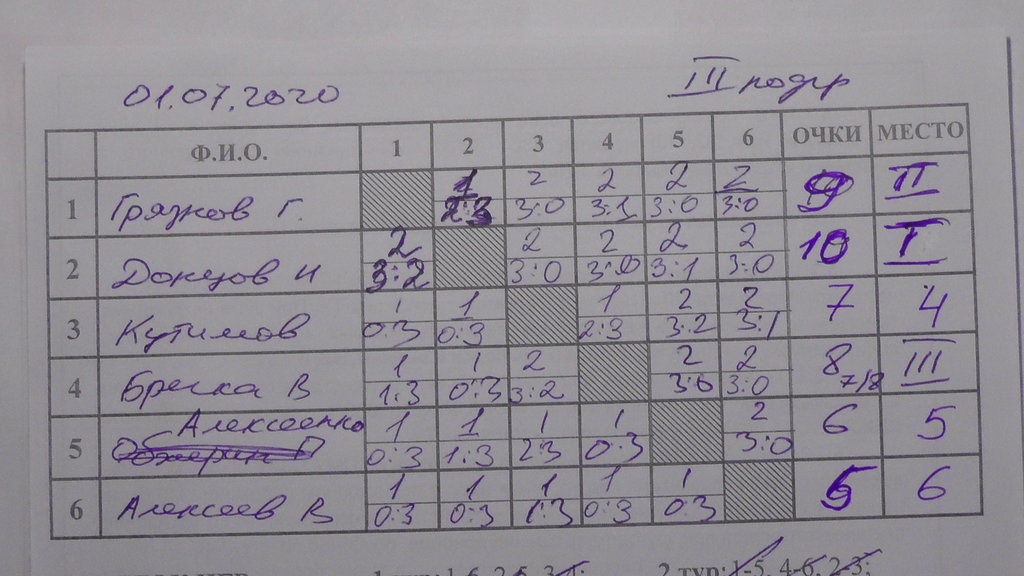 01.07.2020 III подгр
Ф.И.О. 1 2 3 4 5 6 ОЧКИ МЕСТО
1 Грязнов Г. 1 2 2 2 2 9 II
2:3 3:0 3:1 3:0 3:0
2 Донцов И 2 2 2 2 2 10 I
3:2 3:0 3:0 3:1 3:0
3 Кутимов 1 1 1 2 2 7 4
0:3 0:3 2:3 3:2 3:1
4 В 1 1 2 2 2 8 III
1:3 0:3 3:2 3:0 3:0 7/8
5 С Алексеенко 1 1 1 1 2 6 5
0:3 1:3 23 0:3 3:0
6 Алексеев В 1 1 1 1 1 5 6
0:3 0:3 1:3 0:3 0:3
2 тур: 1-5, 4-6, 2-3;